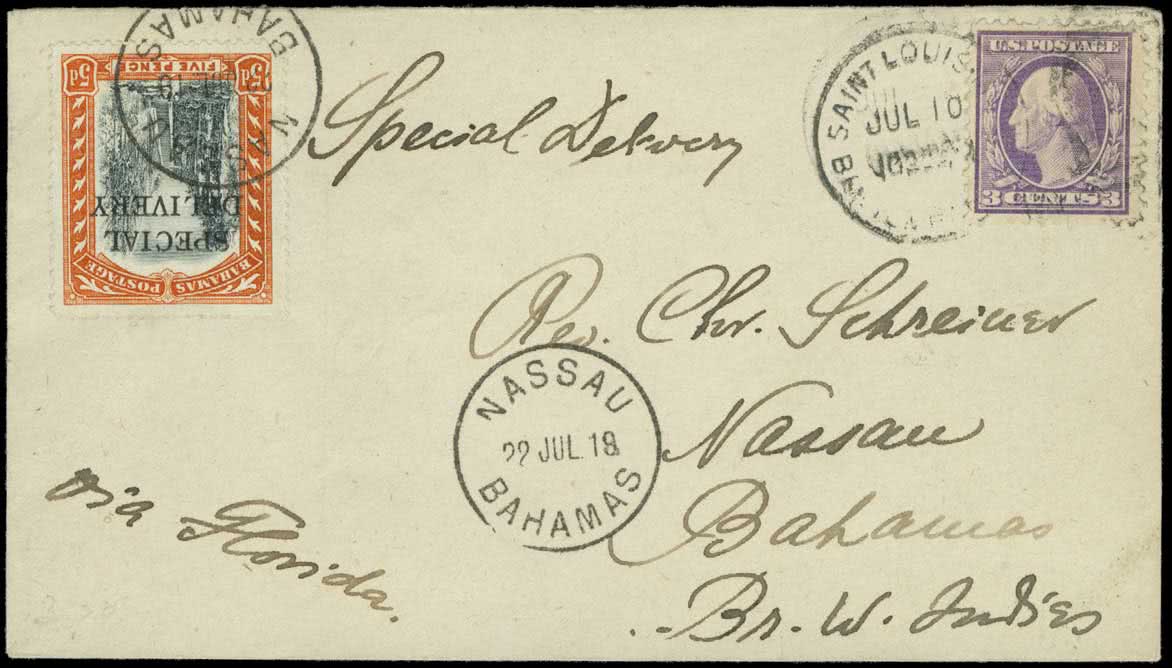 NASSAU
BAHAMAS
5d FIVE PENCE 5d
SPECIAL
DELIVERY
BAHAMAS POSTAGE
Special Delivery
SAINT LOUIS,
JUL 10
U.S. POSTAGE
3 CENTS 3
Rev. Chr. Schreiner
Nassau
Bahamas
Br. W. Indies
NASSAU
22 JUL 18
BAHAMAS
via Florida.